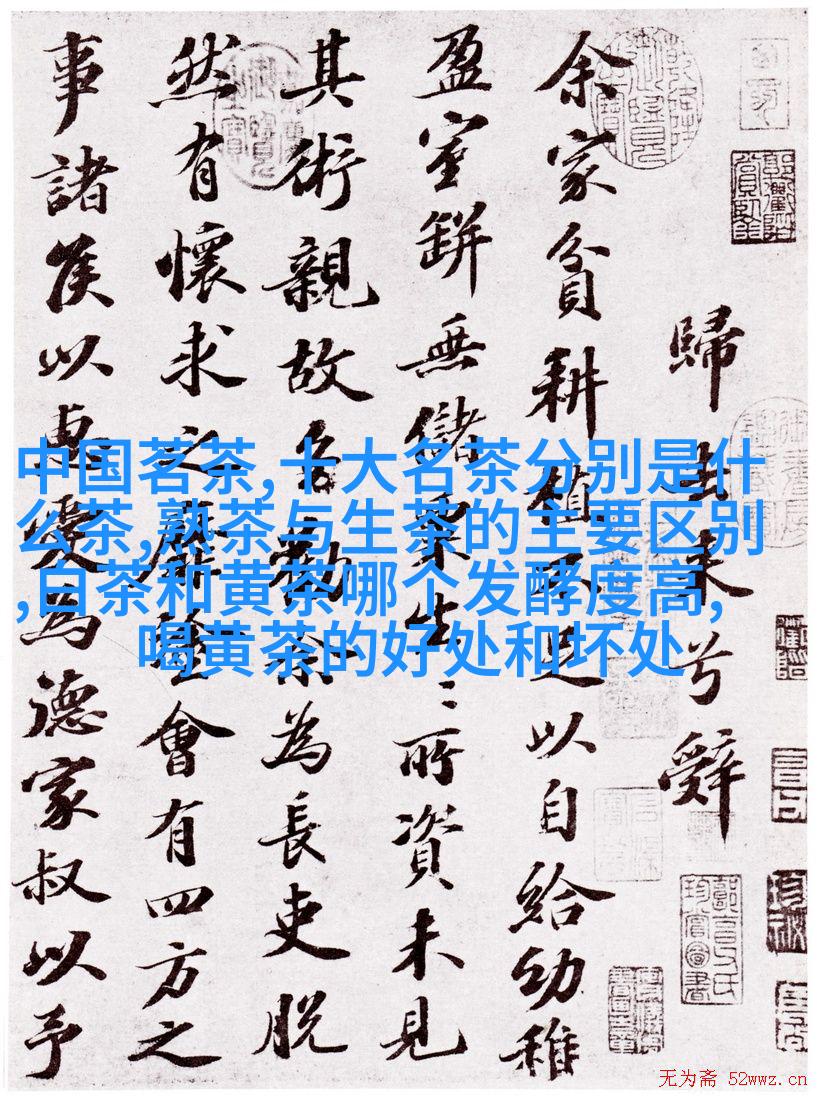 歸去来兮辭
余家貧耕植不足以自給幼稚
盈室缾無儲粟生〻所資未見
其術親故多勸余為長吏脫
然有懷求之靡途會有四方之
事諸侯以惠愛為德家叔以予
中国茗茶,十大名茶分别是什
么茶,熟茶与生茶的主要区别
,白茶和黄茶哪个发酵度高,
喝黄茶的好处和坏处
无为斋 52wwz.cn